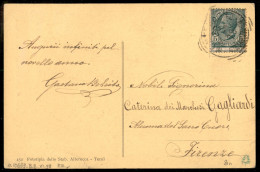 Auguri infiniti pel
novello anno.
Gustavo
Nobile Signorina
Caterina dei Marchesi Gagliardi
Alunna del Sacro Cuore
Firenze